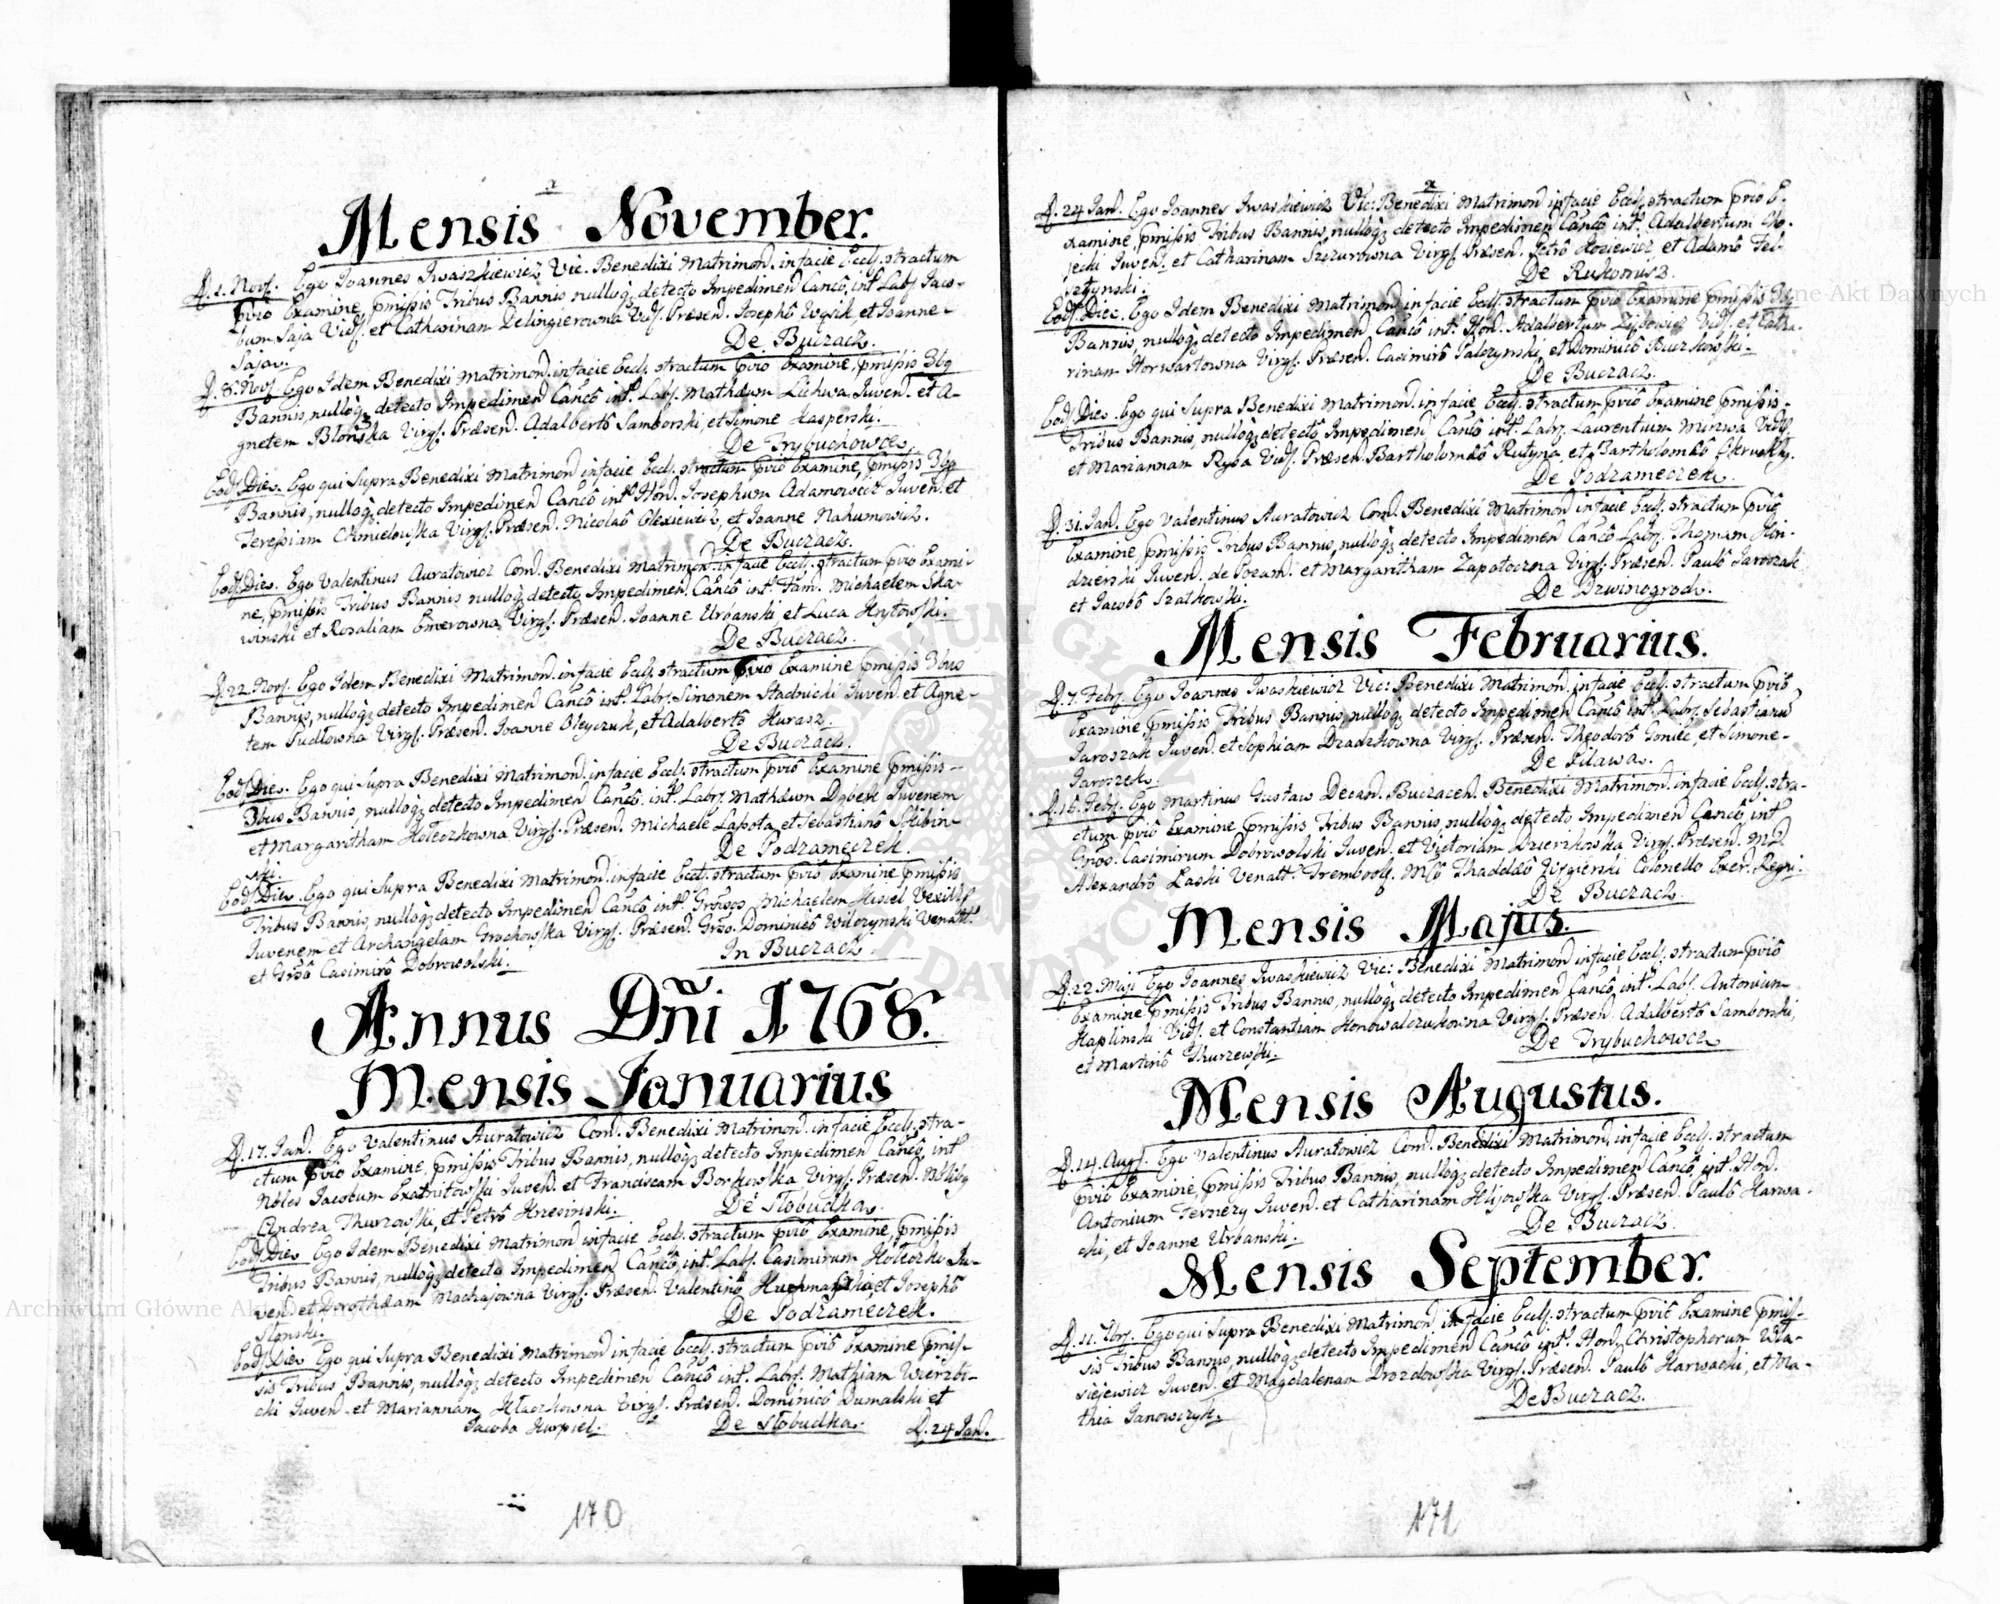 Mensis November.
D. 1. Novs. Ego Joannes Jwaszkiewicz Vic. Benedixi Matrimon. in facie Eccls. stractum
pvio Examine, pmissis Tribus Bannis nulloq; detecto Impedimen Canco, int Labs Jaco-
bum Saja Vids. et Catharinam Delingierowna Vids. Præsen. Josepho Wąsik, et Joanne
Saja.
De Buczacz.
D. 8. Novs. Ego Idem Benedixi Matrimon. in facie Eccls. stractum pvio Examine, pmissis 3bq
Bannis, nulloq; detecto Impedimen Canco int. Labs. Mathæum Lichwa Juven. et A-
gnetem Blońska Virgs. Præsen. Adalberto Samborski, et Simone Kasperski.
De Trybuchowce.
Eods. Die. Ego qui Supra Benedixi Matrimon in facie Eccls. stractum pvio Examine, pmissis 3bq
Bannis, nulloq; detecto Impedimen Canco int. Hon. Josephum Adamowicz Juven. et
Teressiam Chmielowska Virgs. Præsen. Nicolao Olexiewicz, et Joanne Nahumowicz.
De Buczacz.
Eods. Die. Ego Valentinus Auratowicz Com. Benedixi Matrimon. in facie Eccls. stractum pvio Exami-
ne, pmissis Tribus Bannis nulloq; detecto Impedimen. Canco int. Fam. Michaelem Ska-
winski et Rosaliam Emerowna Virgs. Præsen. Joanne Urbanski, et Luca Hrytowski.
De Buczacz.
D. 22 Novs. Ego Idem Benedixi Matrimon. in facie Eccls. stractum pvio Examine pmissis 3bus
Bannis, nulloq; detecto Impedimen Canco int. Labs. Simonem Stadnicki Juven. et Agne-
tem Pudłowna Virgs. Præsen. Joanne Oleyczuk, et Adalberto Kurasz.
De Buczacz.
Eods. Die. Ego qui Supra Benedixi Matrimon. in facie Eccls. stractum pvio Examine pmissis
3bus Bannis, nulloq; detecto Impedimen Canco. int. Labs. Mathæum Dąbek Juvenem
et Margaritham Hołeczkowna Virgs. Præsen. Michaele Łapota et Sebastiano Słibin-
ski.
De Podzameczek.
Eods. Die. Ego qui Supra Benedixi Matrimon. in facie Eccls. stractum pvio Examine pmissis
Tribus Bannis, nulloq; detecto Impedimen Canco int. Grosos Michaelem Kisiel Vexills
Juvenem et Archangelam Grochowska Virgs. Præsen. Gros. Dominico Wilczynski Venatt.
et Groso Casimiro Dobrowolski.
In Buczacz.
Annus Dñi 1768.
Mensis Januarius
D. 17. Jan. Ego Valentinus Auratowicz Com. Benedixi Matrimon. in facie Eccls. stra-
ctum pvio Examine, pmissis Tribus Bannis, nulloq; detecto Impedimen Canco, int
Nobles Jacobum Exatnitowski Juven. et Franciscam Borkowska Virgs. Præsen. Nblibq
Andrea Thurzowski, et Petro Krzesinski.
De Słobudka.
Eods. Die Ego Idem Benedixi Matrimon in facie Eccls. stractum pvio Examine, pmissis
Tribus Bannis, nulloq; detecto Impedimen Canco, int. Labs. Casimirum Hołeczko Ju-
ven. et Dorothæam Machajowna Virgs. Præsen. Valentino et Josepho
Słonski.
De Podzameczek.
Eods. Die Ego qui Supra Benedixi Matrimon in facie Eccls. stractum pvio Examine pmis-
sis Tribus Bannis, nulloq; detecto Impedimen Canco int. Labs. Mathiam Wierzbi-
cki Juven. et Mariannam Kłaczkowna Virgs. Præsen. Dominico Dumalski et
Jacobo Kurpiel.
De Słobudka.
D. 24 Jan.
170
D. 24 Jan. Ego Joannes Jwaskiewicz Vic: Benedixi Matrimon in facie Eccls. stractum pvio E-
xamine, pmissis Tribus Bannis, nulloq; detecto Impedimen Canco, int. Adalbertum Wo-
jecki Juven. et Catharinam Szczurowna Virgs. Præsen. Petro Koziewicz, et Adamo Fel-
sztynski.
De Rukomisz.
Eods. Die. Ego Idem Benedixi Matrimon in facie Eccls. stractum pvio Examine pmissis 3bq
Bannis, nulloq; detecto Impedimen. Canco int. Hon. Adalbertum Zybowicz Vids. et Catha-
rinam Horwartowna Virgs. Præsen. Casimiro Palczynski, et Dominico Buczkowski.
De Buczacz.
Eods. Die. Ego qui Supra Benedixi Matrimon. in facie Eccls. stractum pvio Examine pmissis
Tribus Bannis, nulloq; detecto Impedimen Canco int. Labs. Laurentium Murwa Vids.
et Mariannam Ryba Vids. Præsen. Bartholomæo Rutyna, et Bartholomæo
De Podzameczek.
D. 31. Jan. Ego Valentinus Auratowicz Com. Benedixi Matrimon in facie Eccls. stractum pvio
Examine, pmissis Tribus Bannis, nulloq; detecto Impedimen Canco Labs. Thomam Kon-
dzierski Juven. de Pozam. et Margaritham Zapotoczna Virgs. Præsen. Paulo Jaroszak
et Jacobo Szatkowski.
De Dzwinogrod.
Mensis Februarius.
D. 7. Febs. Ego Joannes Jwaskiewicz Vic: Benedixi Matrimon. in facie Eccls. stractum pvio
Examine, pmissis Tribus Bannis, nulloq; detecto Impedimen Canco int. Labs. Sebastianu
Jaroszak Juven. et Sophiam Dzadzkowna Virgs. Præsen. Theodoro Goniec, et Simone
Jaroszek.
De Pilawa.
D. 16. Febs. Ego Martinus Gustaw Decan. Buczacen. Benedixi Matrimon. in facie Eccls. stra-
ctum pvio Examine pmissis Tribus Bannis, nulloq; detecto Impedimen Canco, int
Gros. Casimirum Dobrowolski Juven. et Victoriam Dzierzkowska Virgs. Præsen. MD
Alexandro Łaski Venatt. Trembools. Mco Thaddæo Zozgierski Colonello Exer. Regni.
De Buczacz.
Mensis Majus.
D. 22 Maji Ego Joannes Jwaskiewicz Vic: Benedixi Matrimon in facie Eccls. stractum pvio
Examine pmissis Tribus Bannis, nulloq; detecto Impedimen Canco, int. Labs. Antonium
Kaplinski Vids. et Constantiam Konowalczukowna Virgs. Præsen. Adalberto Samborski,
et Martino Thurzewski.
De Trybuchowce
Mensis Augustus.
D. 14. Augs. Ego Valentinus Auratowicz Com. Benedixi Matrimon, in facie Eccls. stractum
pvio Examine, pmissis Tribus Bannis, nulloq; detecto Impedimen Canco, int. Hon.
Antonium Fernezy Juven. et Catharinam Klijowska Virgs. Præsen. Paulo Harwa-
cki, et Joanne Urbanski.
De Buczacz.
Mensis September.
D. 11. 7brs. Ego qui Supra Benedixi Matrimon in facie Eccls. stractum pvio Examine pmis-
sis Tribus Bannis, nulloq; detecto Impedimen Canco int. Hon. Christophorum Wła-
siejewicz Juven. et Magdalenam Drozdowska Virgs. Præsen. Paulo Harwacki, et Ma-
thia Janowczyk.
De Buczacz.
171
Archiwum Główne Akt Dawnych